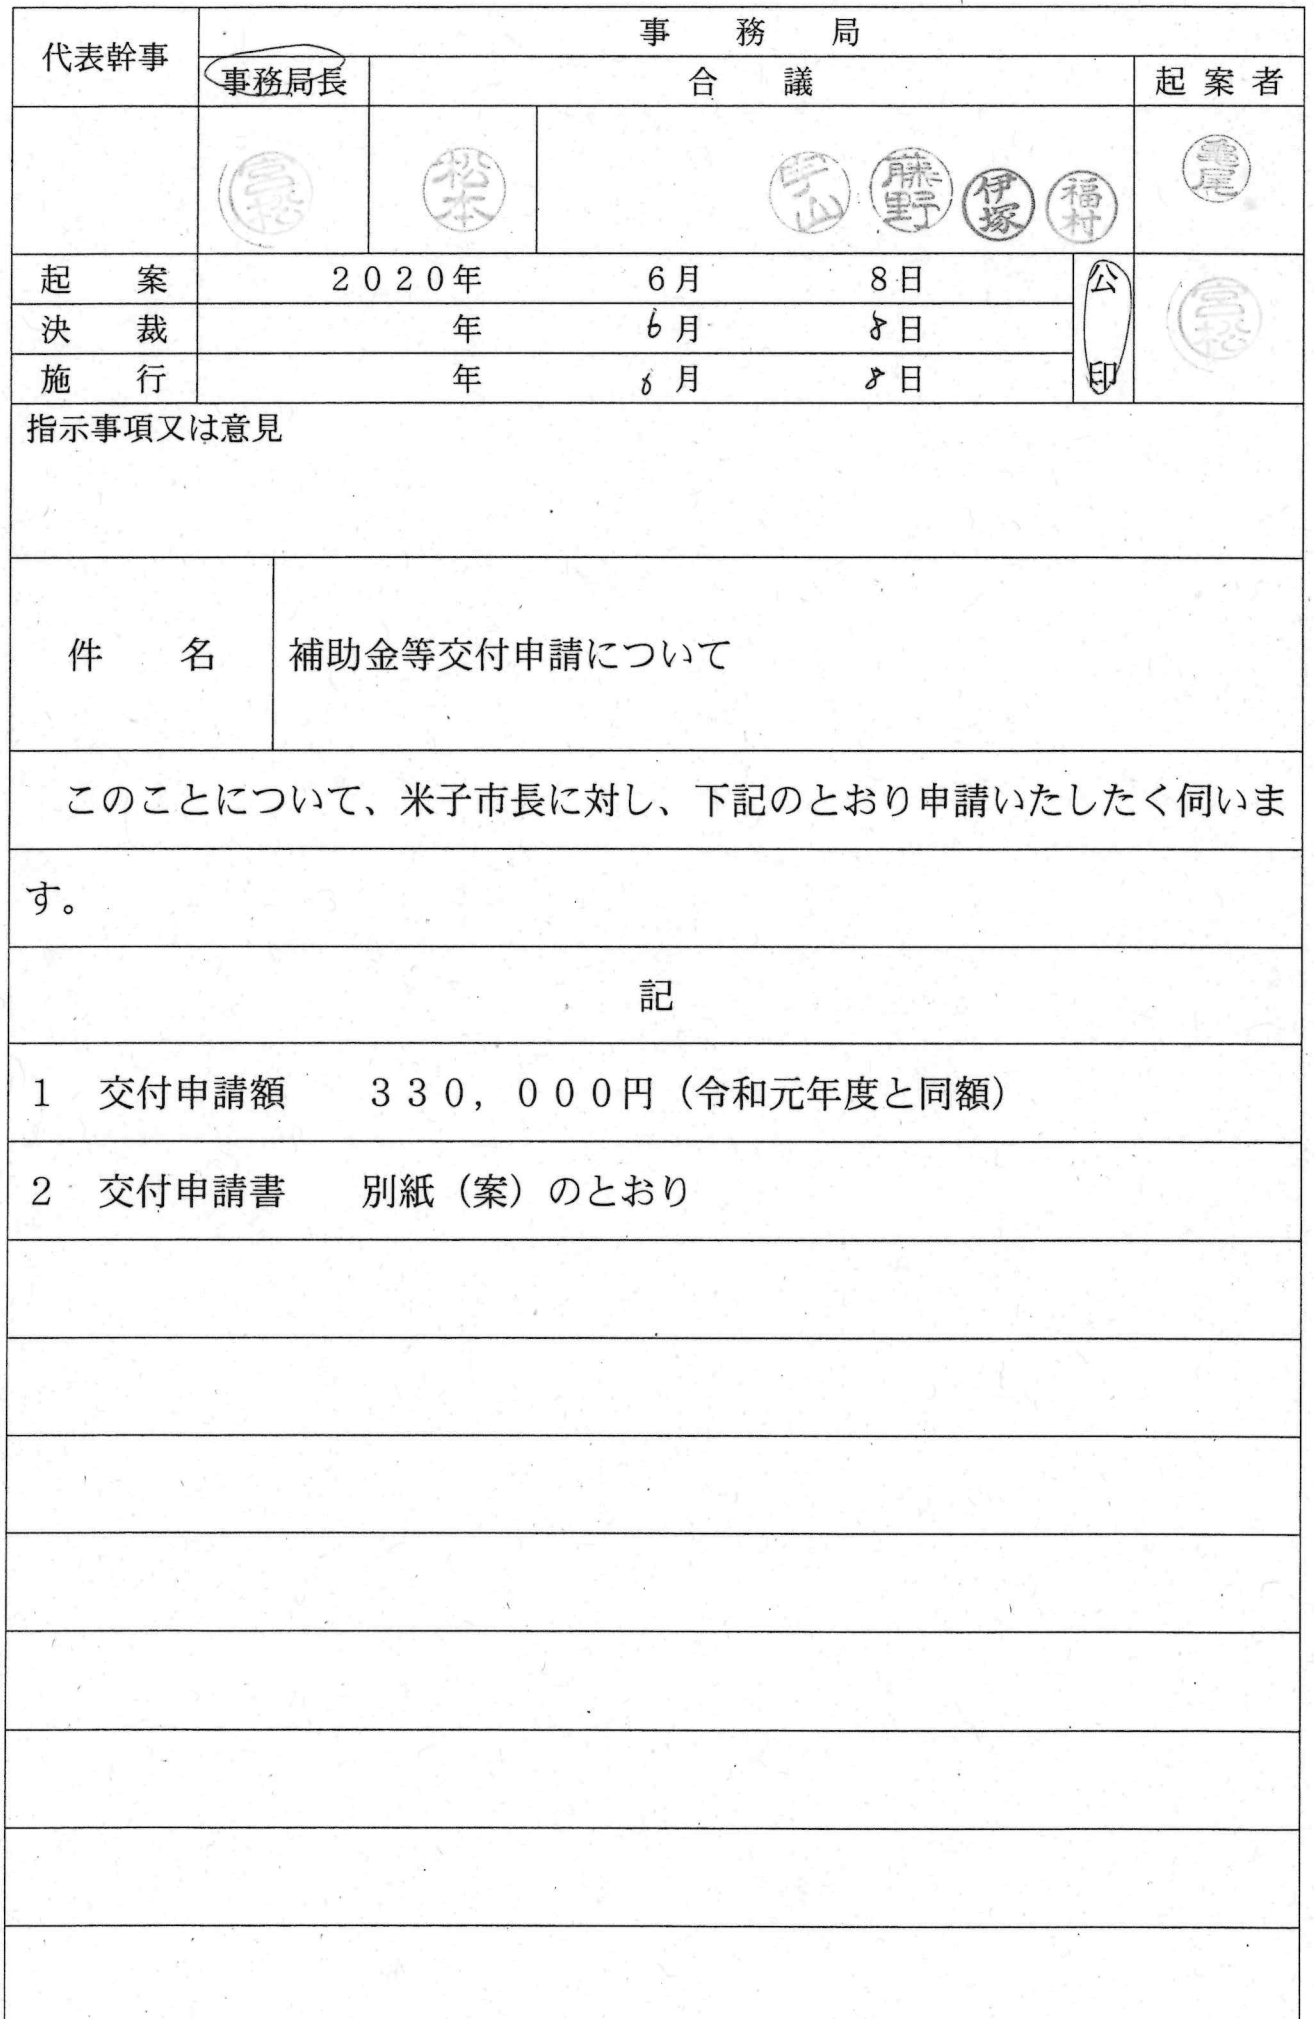 代表幹事
事務局
事務局長
合議
起案者
宮松
松本
藤野
伊塚
福村
亀尾
起案 2020年 6月 8日
決裁 年 6月 8日
施行 年 6月 8日
公印
宮松
指示事項又は意見
件名
補助金等交付申請について
このことについて、米子市長に対し、下記のとおり申請いたしたく伺いま
す。
記
1 交付申請額 330,000円（令和元年度と同額）
2 交付申請書 別紙（案）のとおり